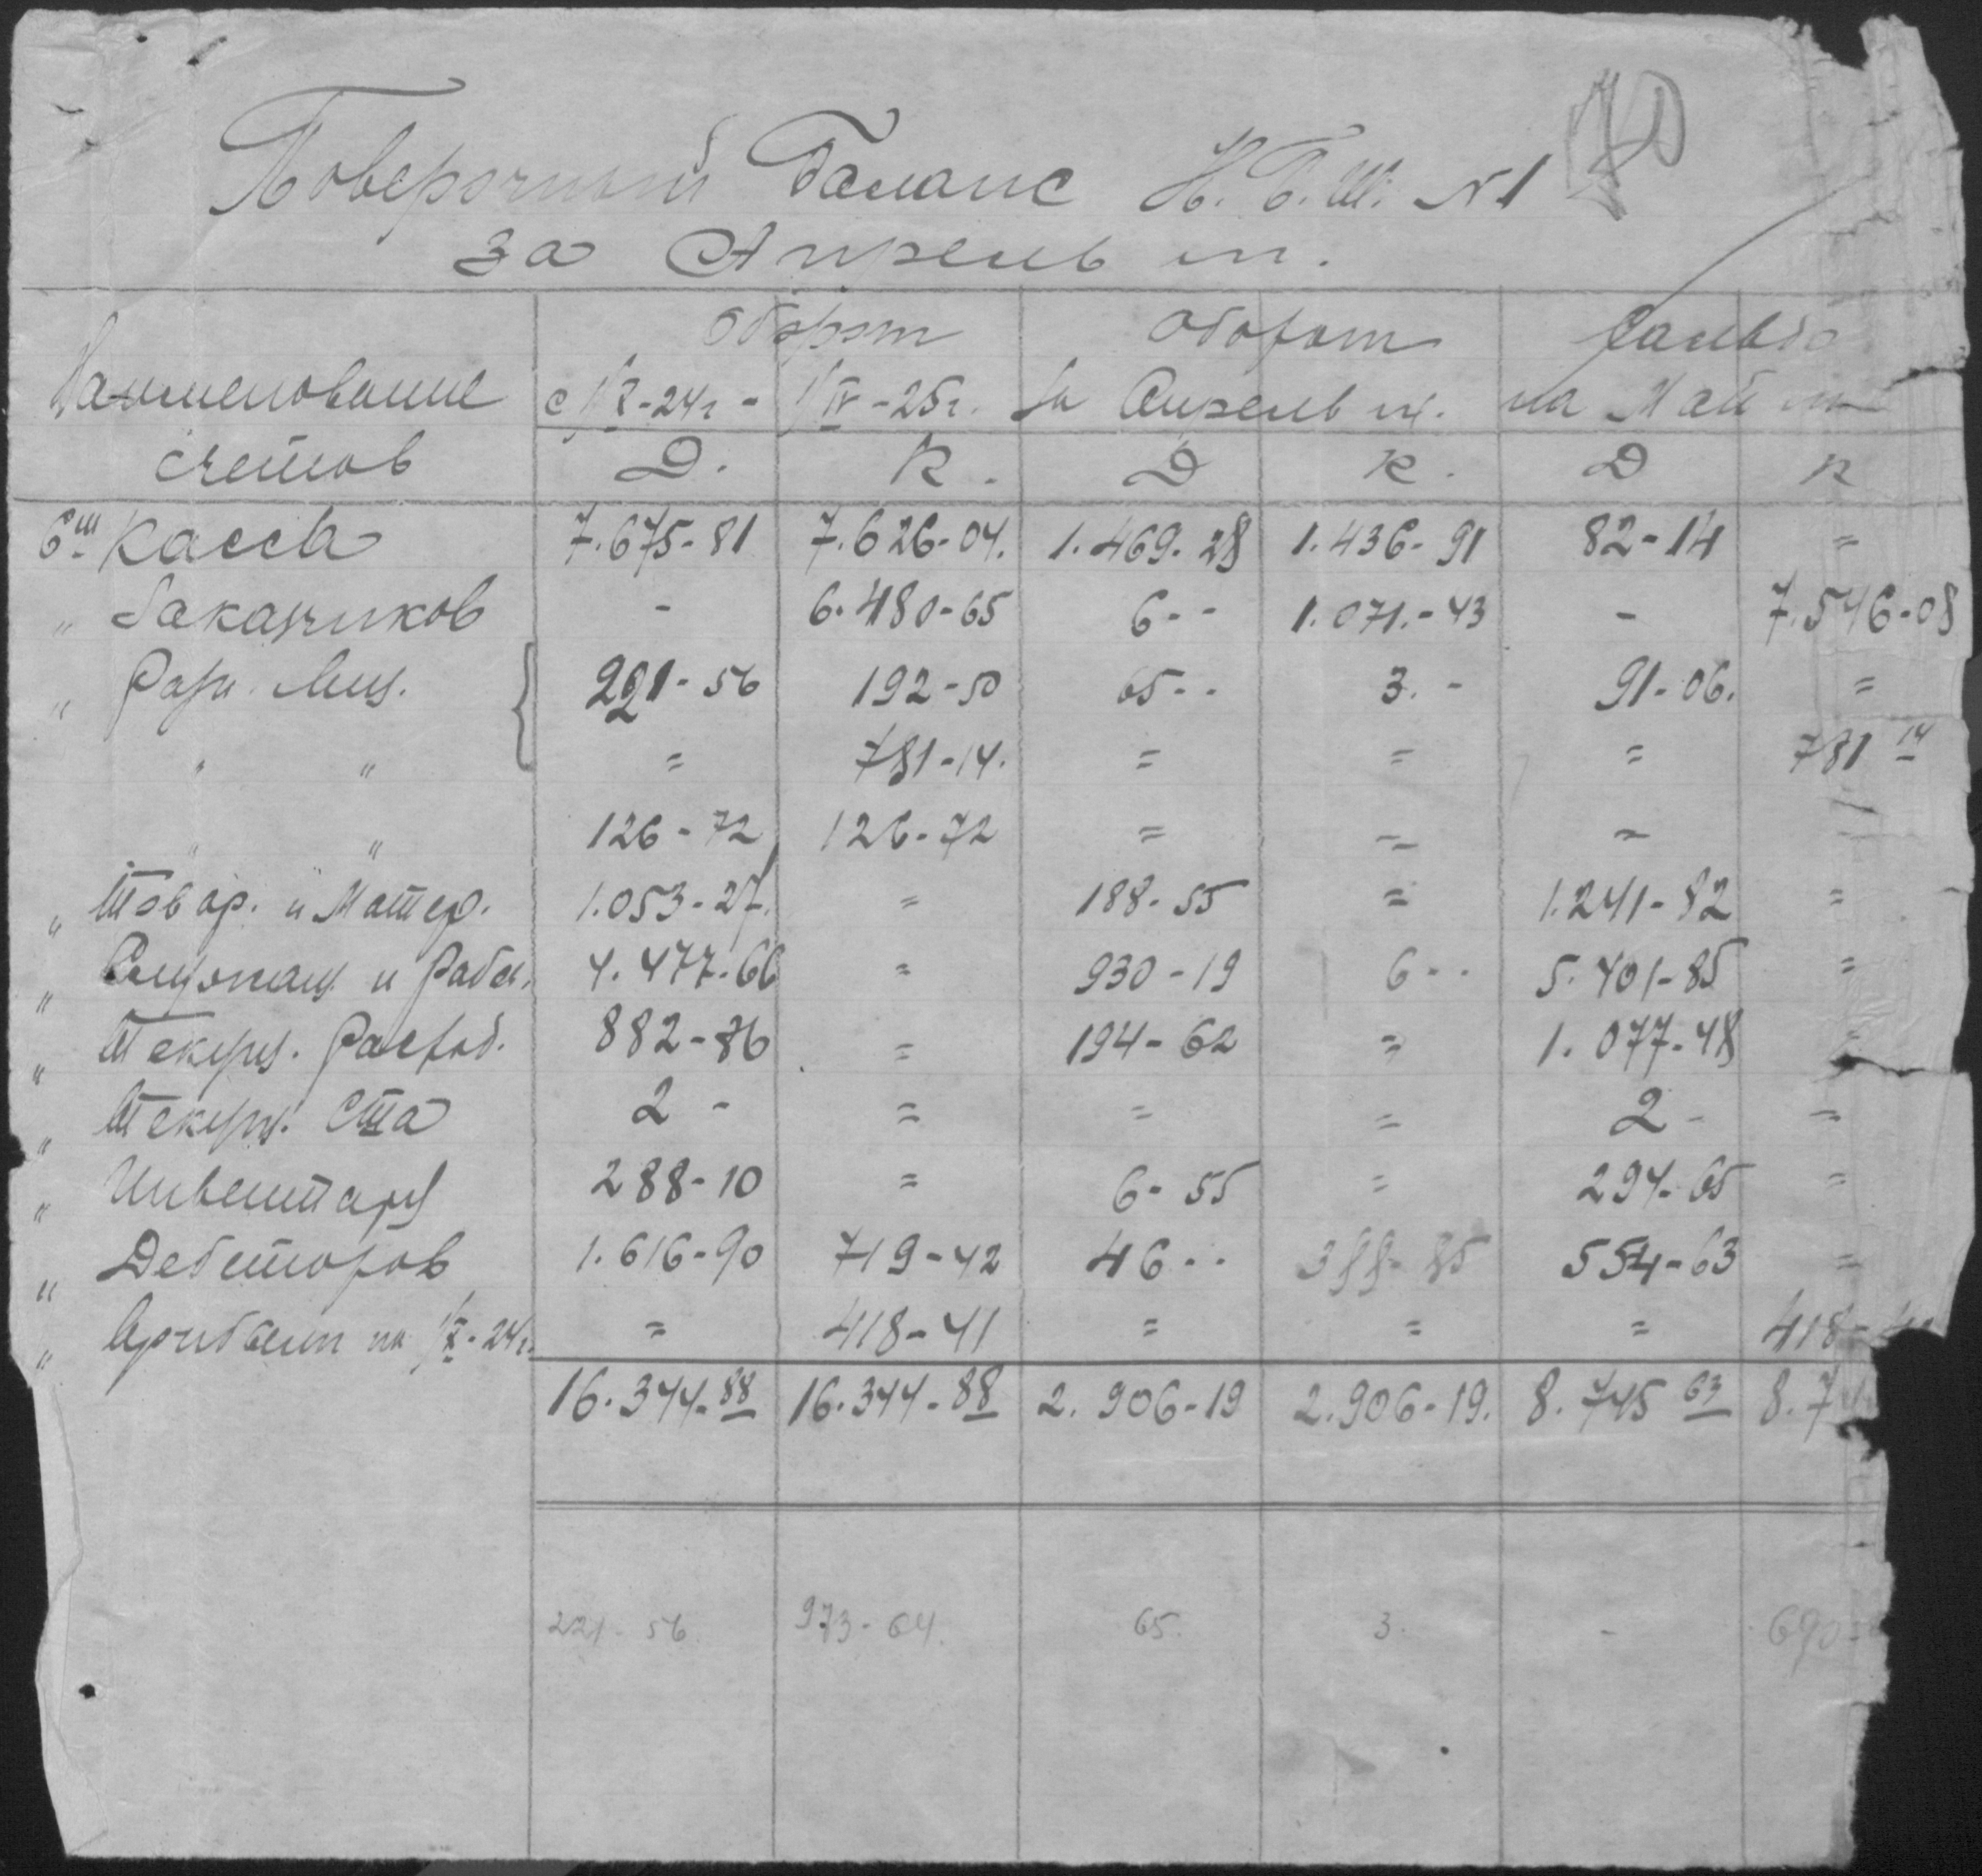 70
Поверочный Баланс Н.Б.Ш. №1
за Апрель м.
Оборот Оборот Сальдо
Наименование с 1/X-24г - 1/IV-25г. за Апрель м. на Май м
счетов Д. К. Д К. Д К
Касса 7.675-81 7.626-04. 1.469.28 1.436-91 82-14 =
" Заказчиков - 6.480-65 6-- 1.071.-43 - 7.546-08
" Разн. Лиц. 221-56 192-50 65-- 3.- 91-06. =
" " = 781-14. = = = 781 14
" " 126-72 126-72 = = =
" Товар. и Матер. 1.053-27. = 188-55 = 1.241-82 =
" Служащ и Рабоч. 4.477-66 = 930-19 6-- 5.401-85 =
" Текущ. Расход. 882-86 = 194-62 = 1.077-48 =
" Текущ. Ста 2 - = = = 2 - =
" Инвентарь 288-10 = 6-55 = 294-65 =
" Дебеторов 1.616-90 719-42 46-- 388-85 554-63 =
" на 1/X-24г. = 418-41 = = = 418-
16.344-88 16.344-88 2.906-19 2.906-19. 8.745 63 8.7
221-56 973-64. 65. 3. - 690